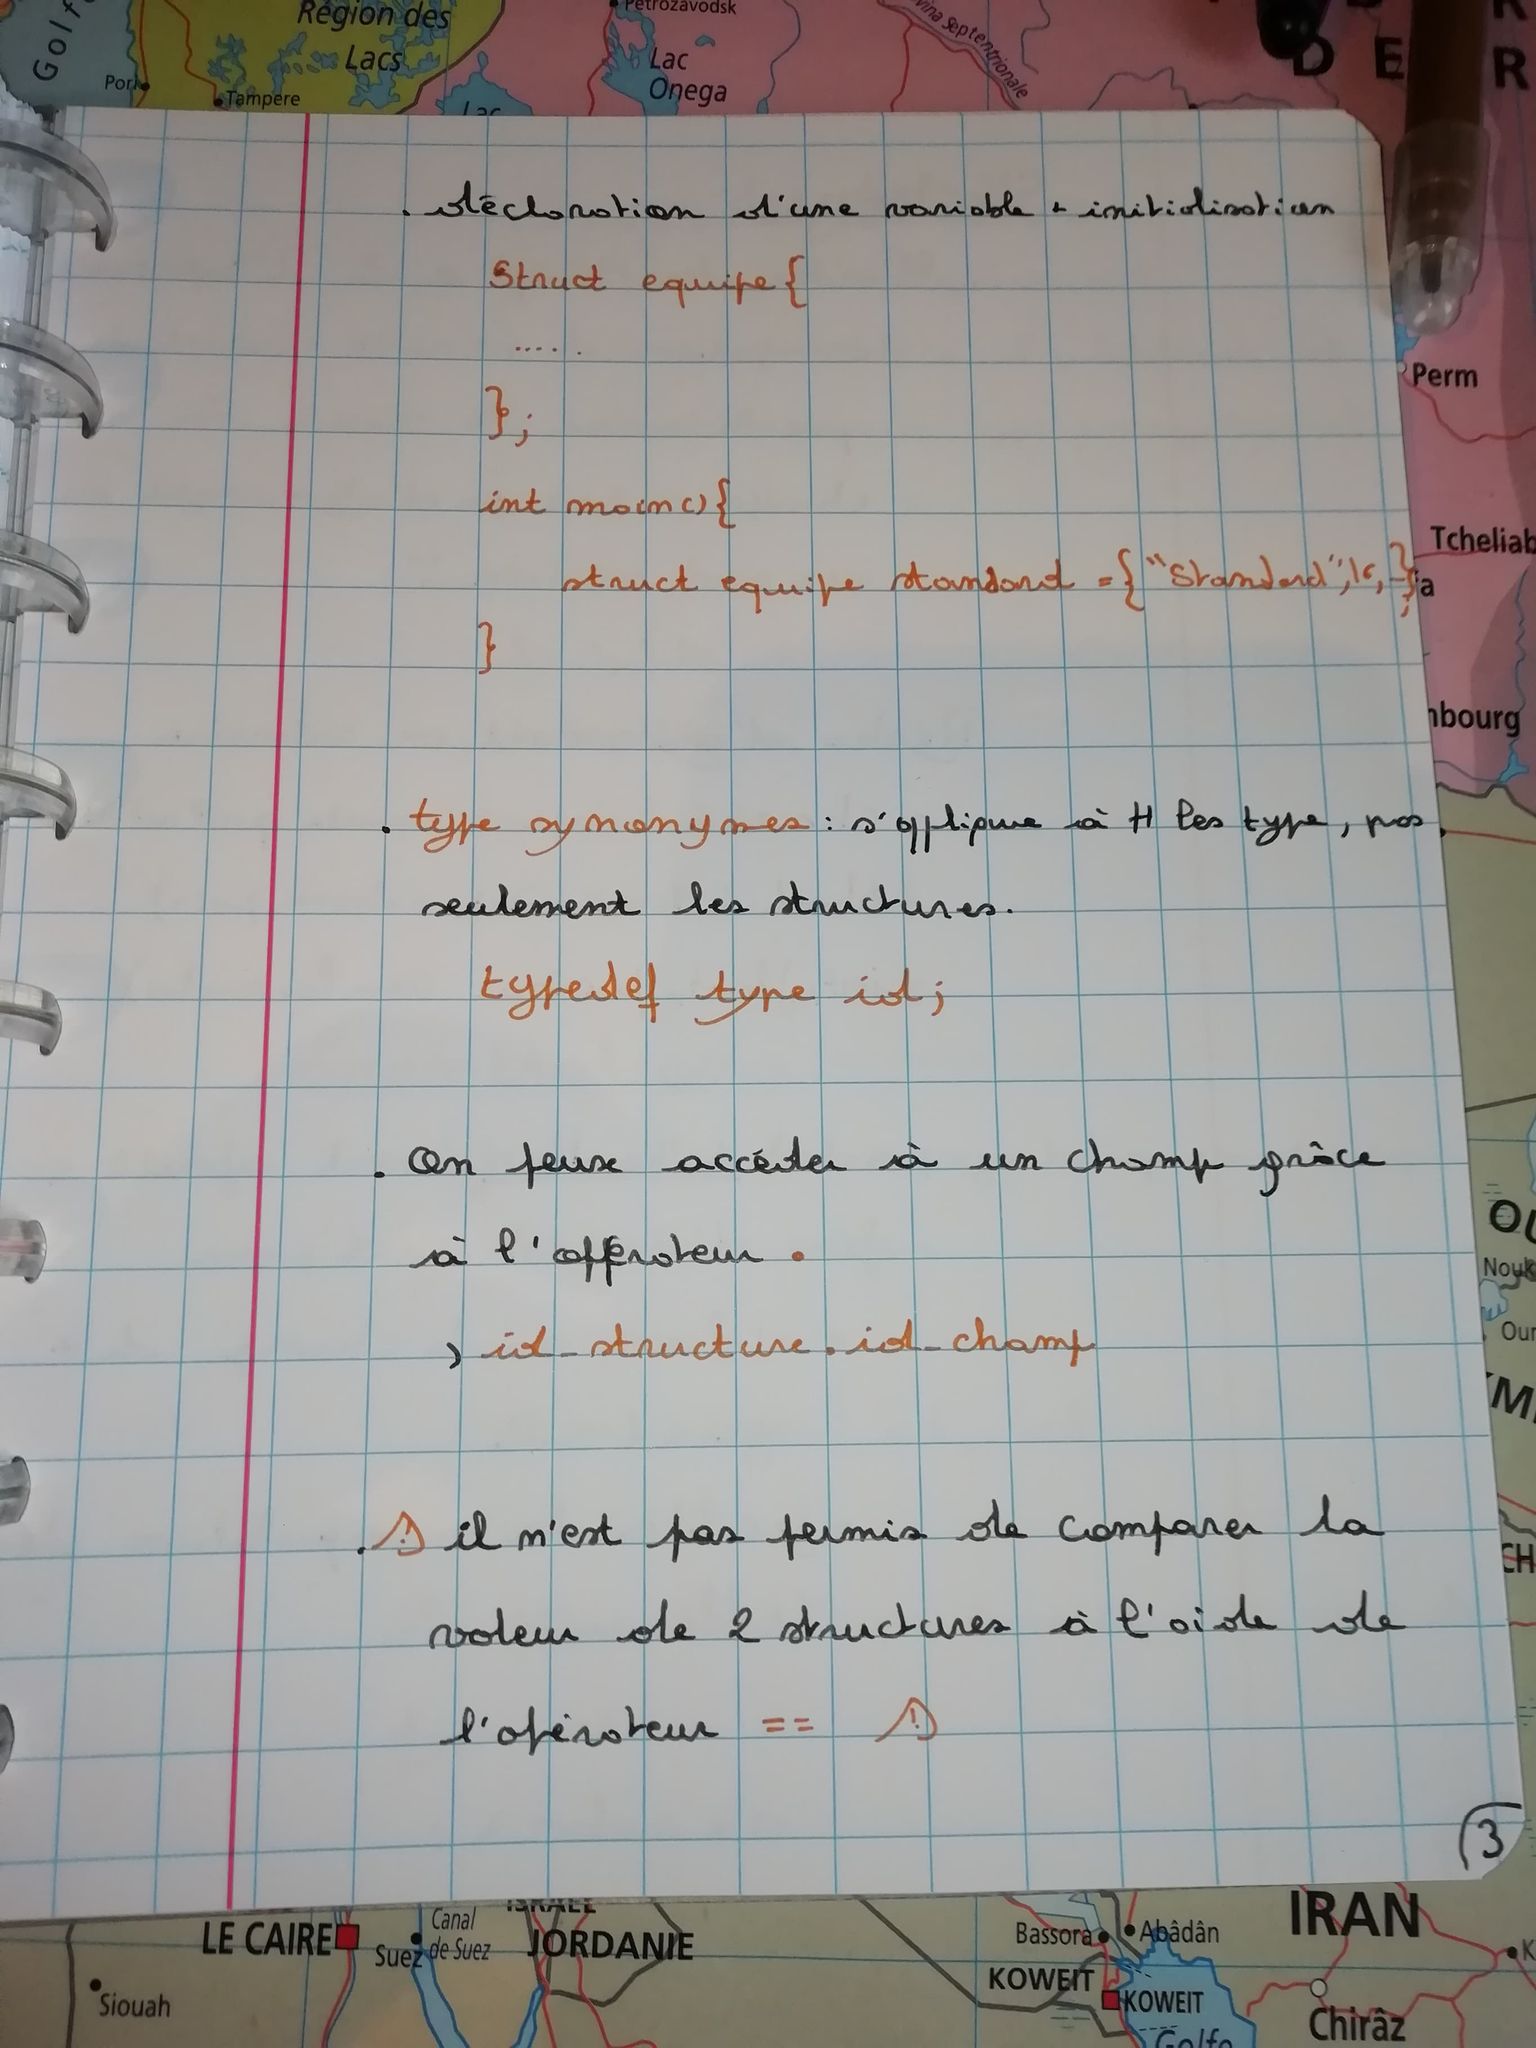 Golf
Région des
Lacs
Pori
Tampere
Petrozavodsk
Lac
Onega
Lac
Septentrionale
D E R
. déclaration d'une variable + initialisation
Struct equipe {
.....
};
int main() {
struct equipe standard = { "Standard", 16, };
}
. type synonymes : s'applique à tt les type, pas
seulement les structures.
typedef type id;
. On peux accéder à un champ grâce
à l'opérateur .
> id_structure.id_champ
. ⚠ il n'est pas permis de comparer la
valeur de 2 structures à l'aide de
l'opérateur == ⚠
3
Perm
Tcheliab
a
nbourg
OU
Nouk
Our
KM
CH
LE CAIRE
Canal
de Suez
Suez
ISRAËL
JORDANIE
Siouah
Bassora
Abâdân
IRAN
KOWEIT
KOWEIT
Chirâz
Golfe
K